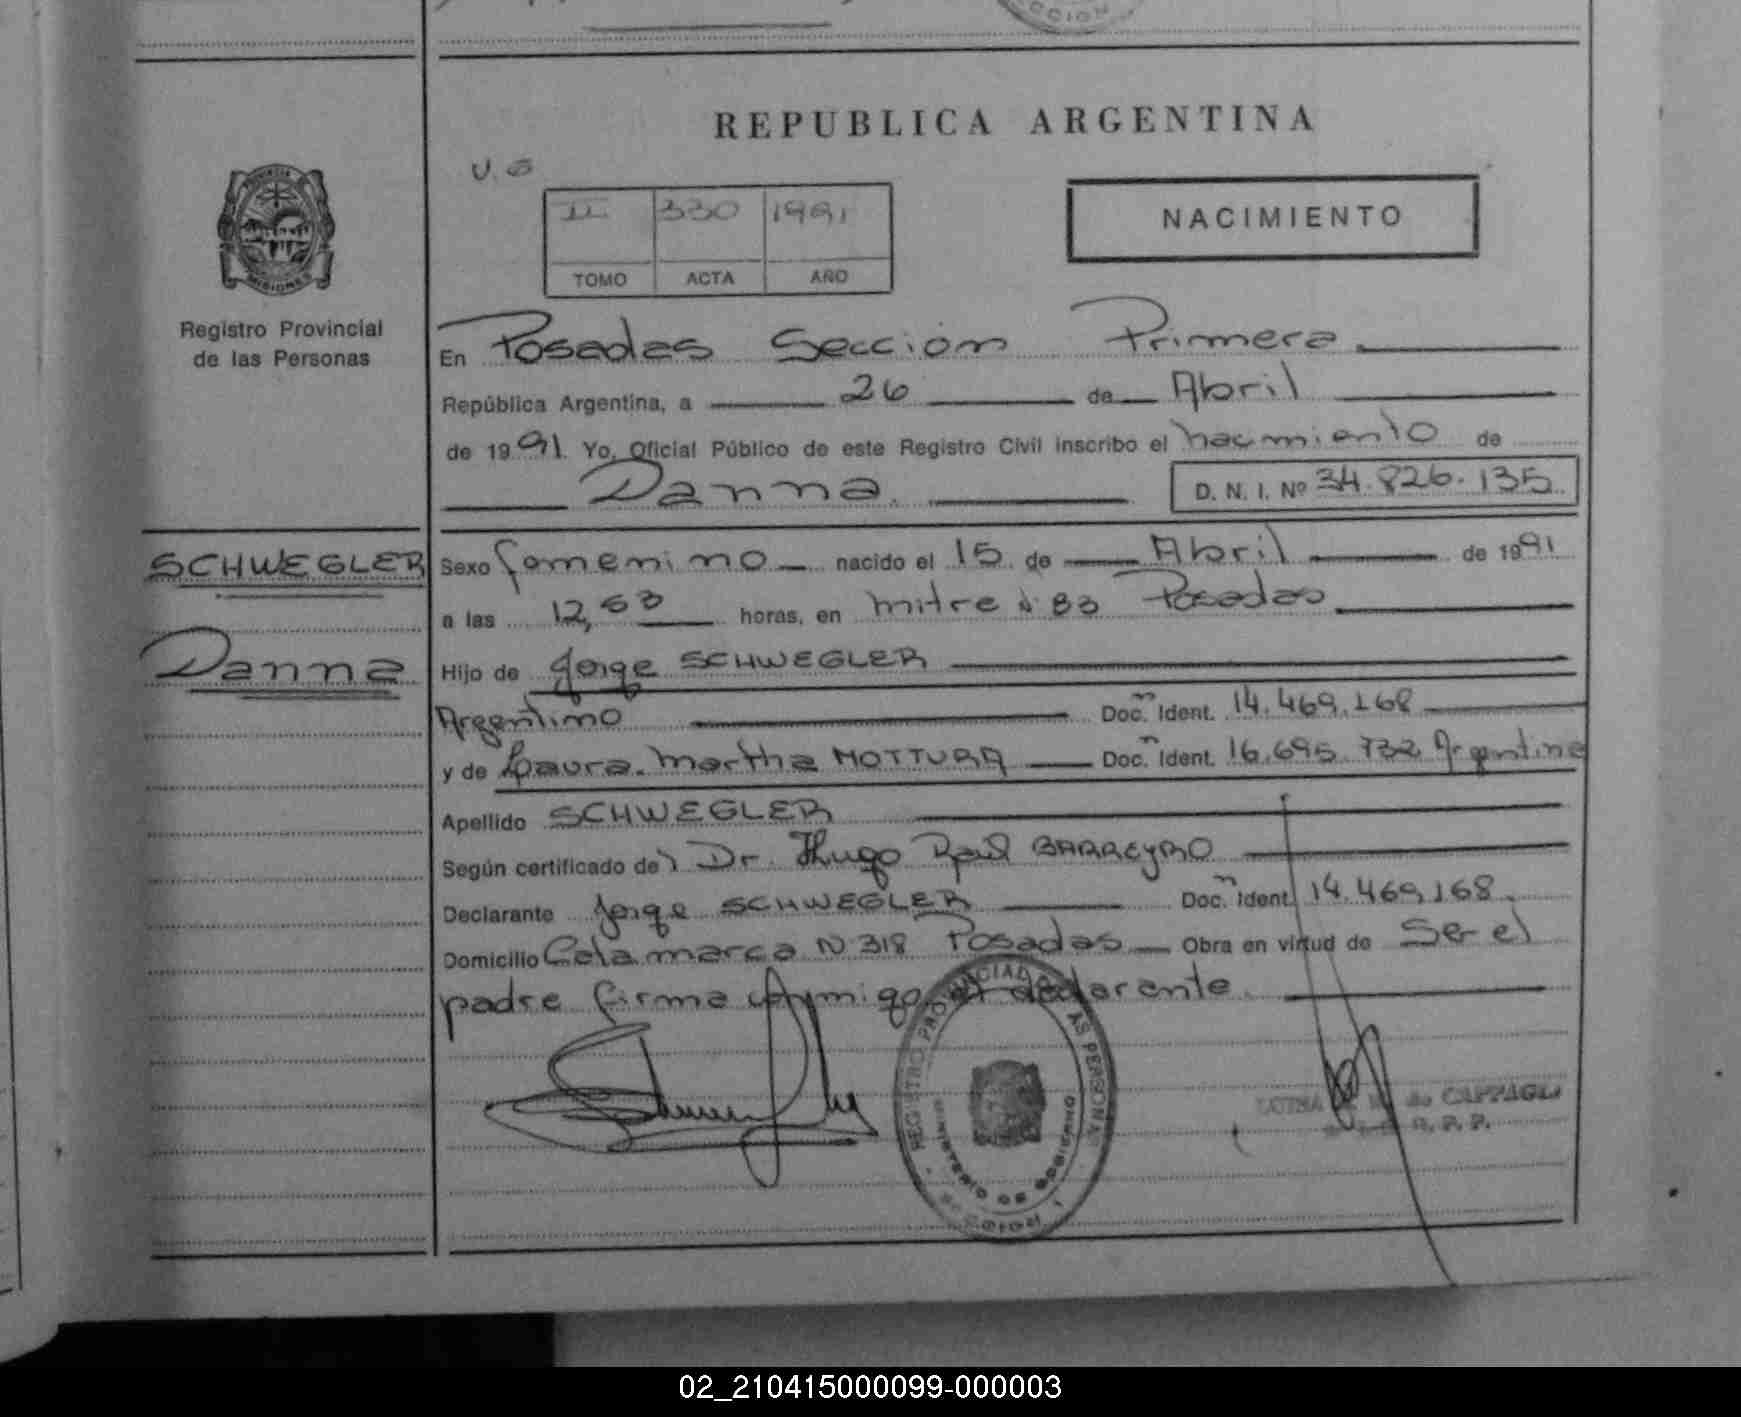 CCION
REPUBLICA ARGENTINA
PROVINCIA DE
MISIONES
Registro Provincial
de las Personas
II 330 1991
TOMO ACTA AÑO
NACIMIENTO
En Posadas Sección Primera
República Argentina, a 26 de Abril
de 1991. Yo, Oficial Público de este Registro Civil inscribo el nacimiento de
Danna. D. N. I. Nº 34.826.135
SCHWEGLER
Danna
Sexo femenino nacido el 15 de Abril de 1991
a las 12,53 horas, en mitre N 83 Posadas
Hijo de Jorge SCHWEGLER
Argentino Doc. Ident. 14.469.168
y de Laura Martha MOTTURA Doc. Ident. 16.695.732 Argentina
Apellido SCHWEGLER
Según certificado del Dr. Hugo Raul BARREYRO
Declarante Jorge SCHWEGLER Doc. Ident. 14.469.168.
Domicilio Catamarca N 318 Posadas Obra en virtud de Ser el
padre firma conmigo el declarante.
REGISTRO PROVINCIAL DE LAS PERSONAS
MINISTERIO DE GOBIERNO
de CAPPAGLI
R. P. P.
02_210415000099-000003